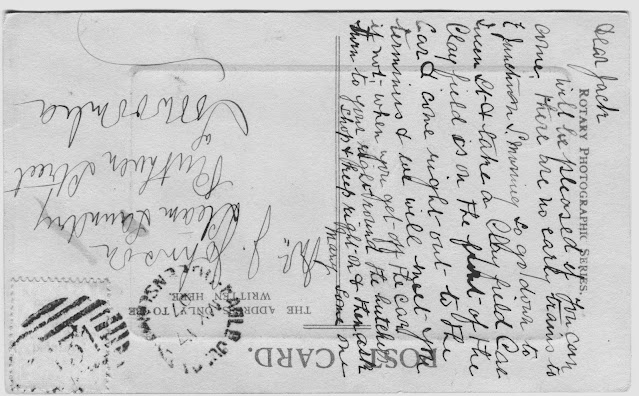 POST CARD.
THE ADDRESS ONLY TO BE
WRITTEN HERE.
ROTARY PHOTOGRAPHIC SERIES.
Dear Jack
will be pleased if you can
come, there are no early trams to
Junction S. Morning so go down to
Queen St & take a Clayfield Car
Clayfield is on the front of the
Car & come right out to the
terminus & we will meet you
if not, when you get off the car
turn to your right round the butcher
shop & keep right on & then ask
some one
Mr. J. Johnson
Steam Laundry
Ruthven Street
Toowoomba